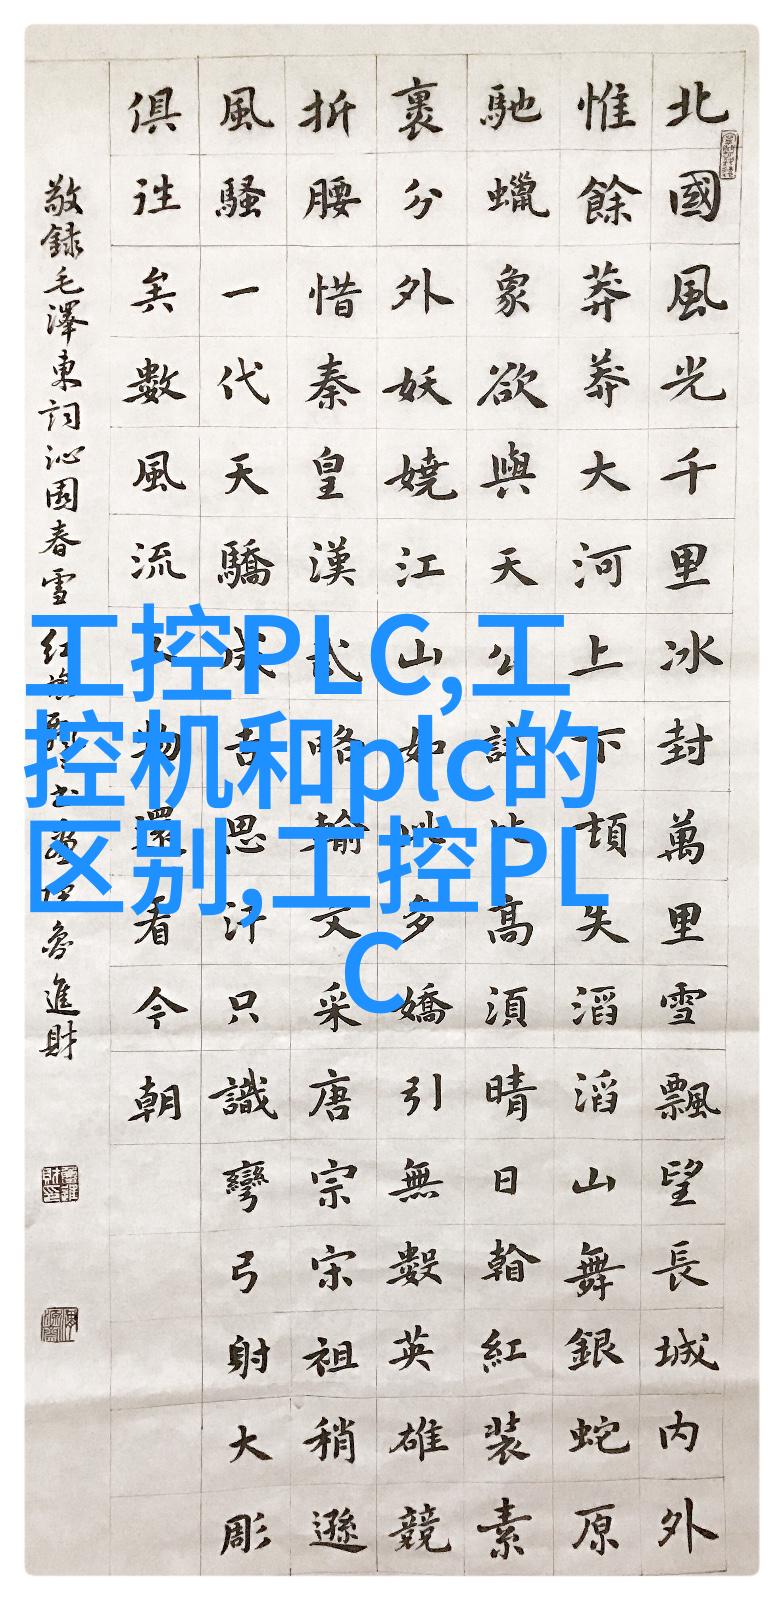 北國風光千里冰封萬里雪飄望長城内外
惟餘莽莽大河上下頡失滔滔山舞銀蛇原
馳蠟象欲與天公試比高須晴日翰紅裝素
裹分外妖嬈江山如此多嬌引無數英雄競
折腰惜秦皇漢武略輸文采唐宗宋祖稍遜
風騷一代天驕成吉思汗只識彎弓射大彫
俱往矣數風流人物還看今朝
敬録毛澤東詞沁園春雪 魯進財
工控PLC,工
控机和plc的
区别,工控PL
C